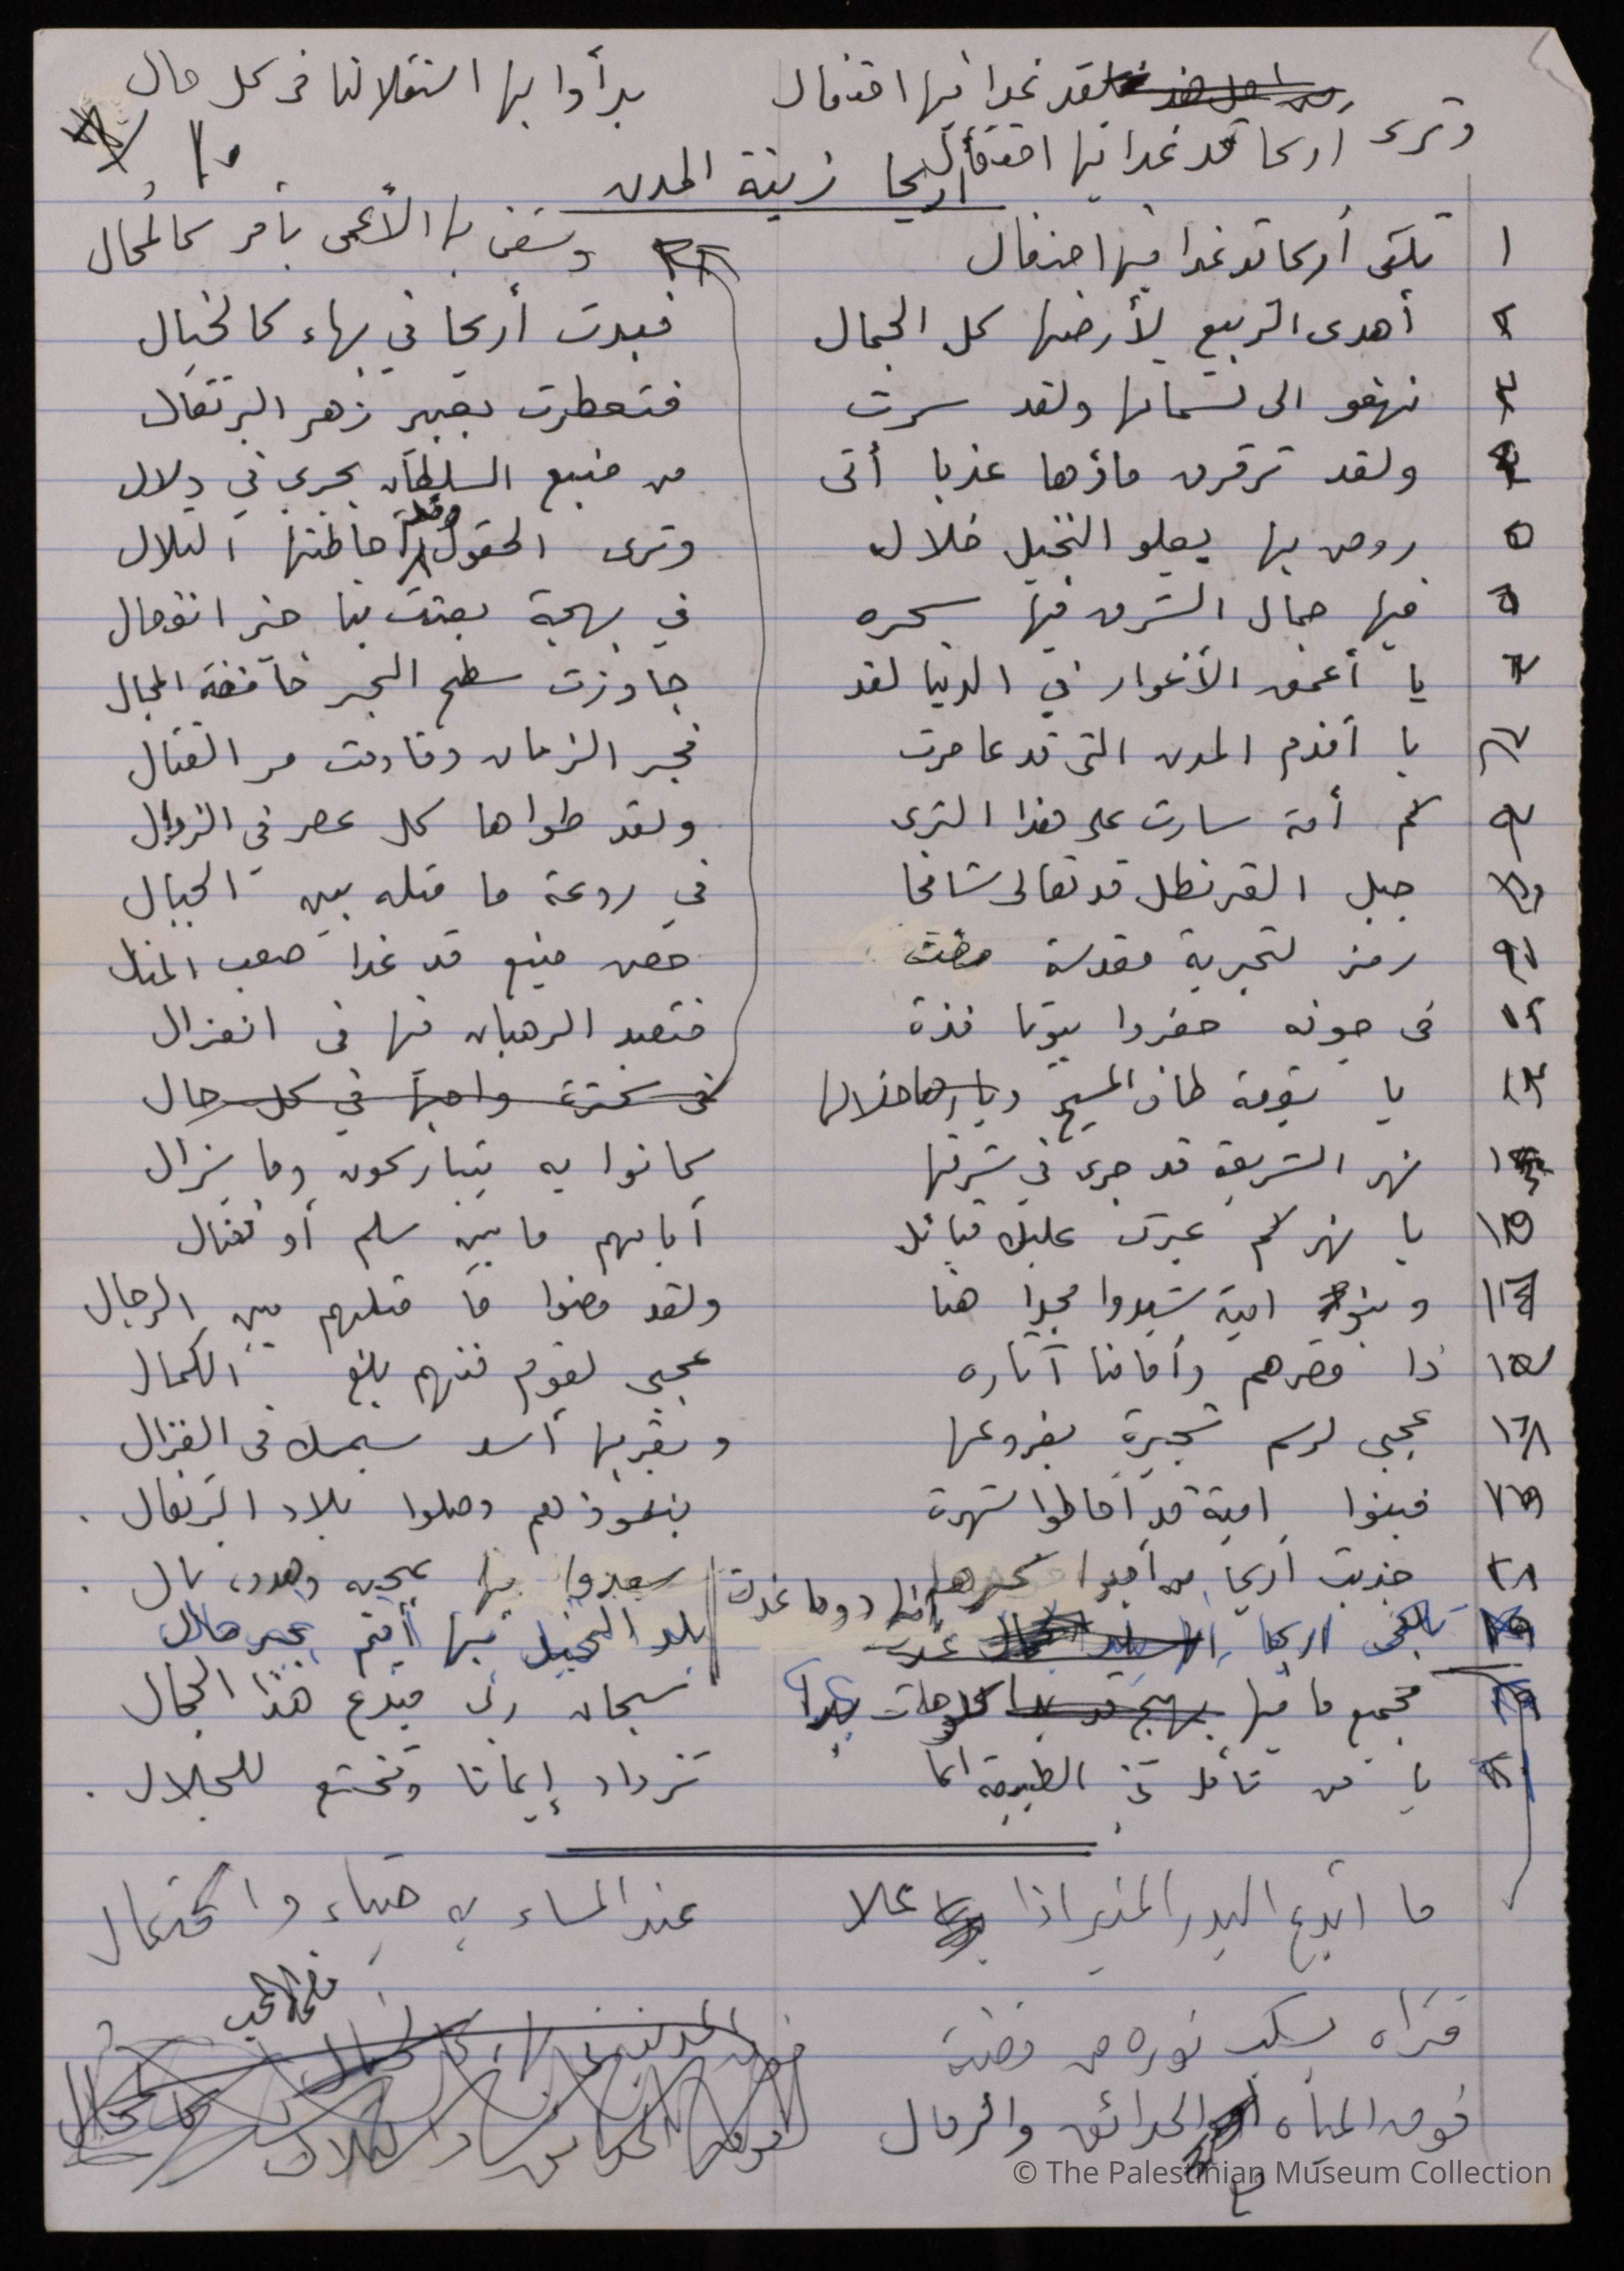 لقد غدا فيها احتفال بدأوا بها استقلالنا في كل حال
وترى أريحا قد غدا فيها احتفال
أريحا زينة المدن
١ تلقى أريحا قد غدا فيها احتفال وشفي بها الأعمى بأمر كالمحال
٢ أهدى الربيع لأرضها كل الجمال فبدت أريحا في بهاء كالخيال
٣ نهفو الى نسماتها ولقد سرت فتعطرت بعبير زهر البرتقال
٤ ولقد ترقرق ماؤها عذبا أتى من منبع السلطان يجري في دلال
٥ روض بها يعلو النخيل خلاله وترى الحقول وقد أحاطتها التلال
٦ فيها جمال الشرق فيها سحره في بهجة بعثت بنا خير انفعال
٧ يا أعمق الأغوار في الدنيا لقد جاوزت سطح البحر خافضة المجال
٨ يا أقدم المدن التي قد عاصرت فجر الزمان وقاومت مر القتال
٩ كم أمة سارت على هذا الثرى ولقد طواها كل عصر في الزوال
١٠ جبل القرنطل قد تعالى شامخا في روعة ما مثله بين الجبال
١١ رمز لتجربة مقدسة مضت حصن منيع قد غدا صعب المنال
١٢ في جوفه حفروا بيوتا فذة فتعبد الرهبان فيها في انعزال
١٣ يا بقعة طاف المسيح خلالها في كل حال
١٤ نهر الشريعة قد جرى في شرقها كانوا به يتباركون وما يزال
١٥ يا نهر كم عبرت عليك قبائل أيامهم ما بين سلم أو قتال
١٦ وبنو امية شيدوا مجدا هنا ولقد مضوا ما مثلهم بين الرجال
١٧ ذا قصرهم وأمامنا آثاره عجبي لقوم فنهم بلغ الكمال
١٨ عجبي لرسم شجيرة بفروعها وبقربها أسد يمسك في الغزال
فبنوا امية قد أحاطوا شهرة بنفوذهم وصلوا بلاد البرتغال .
جذبت أريحا من أحبوا سعدوا بها وهدوء بال .
تلقى اريحا دوما غدت بلد النخيل فيها أنتم بخير حال
فجميع ما فيها سبحان ربي مبدع هذا الجمال
يا من تأمل في الطبيعة انما تزداد إيمانا وتخشع للجلال .
ما أبدع البدر المنير اذا علا عند المساء به ضياء واكتمال
فتراه يسكب نوره من فضة
فوق المياه الحدائق والرمال
© The Palestinian Museum Collection